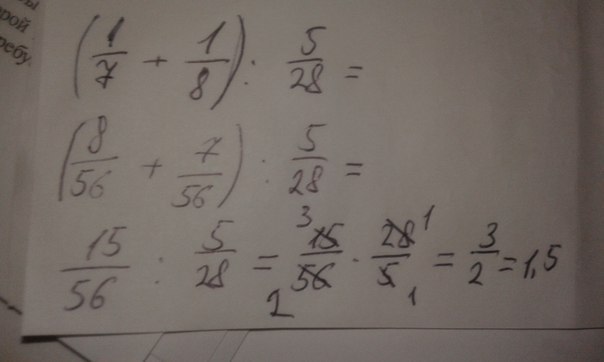 ы
рой
ребу
(1/7 + 1/8) : 5/28 =
(8/56 + 7/56) : 5/28 =
15/56 : 5/28 = 15/56 · 28/5 = 3/2 = 1,5
3 1
2 1